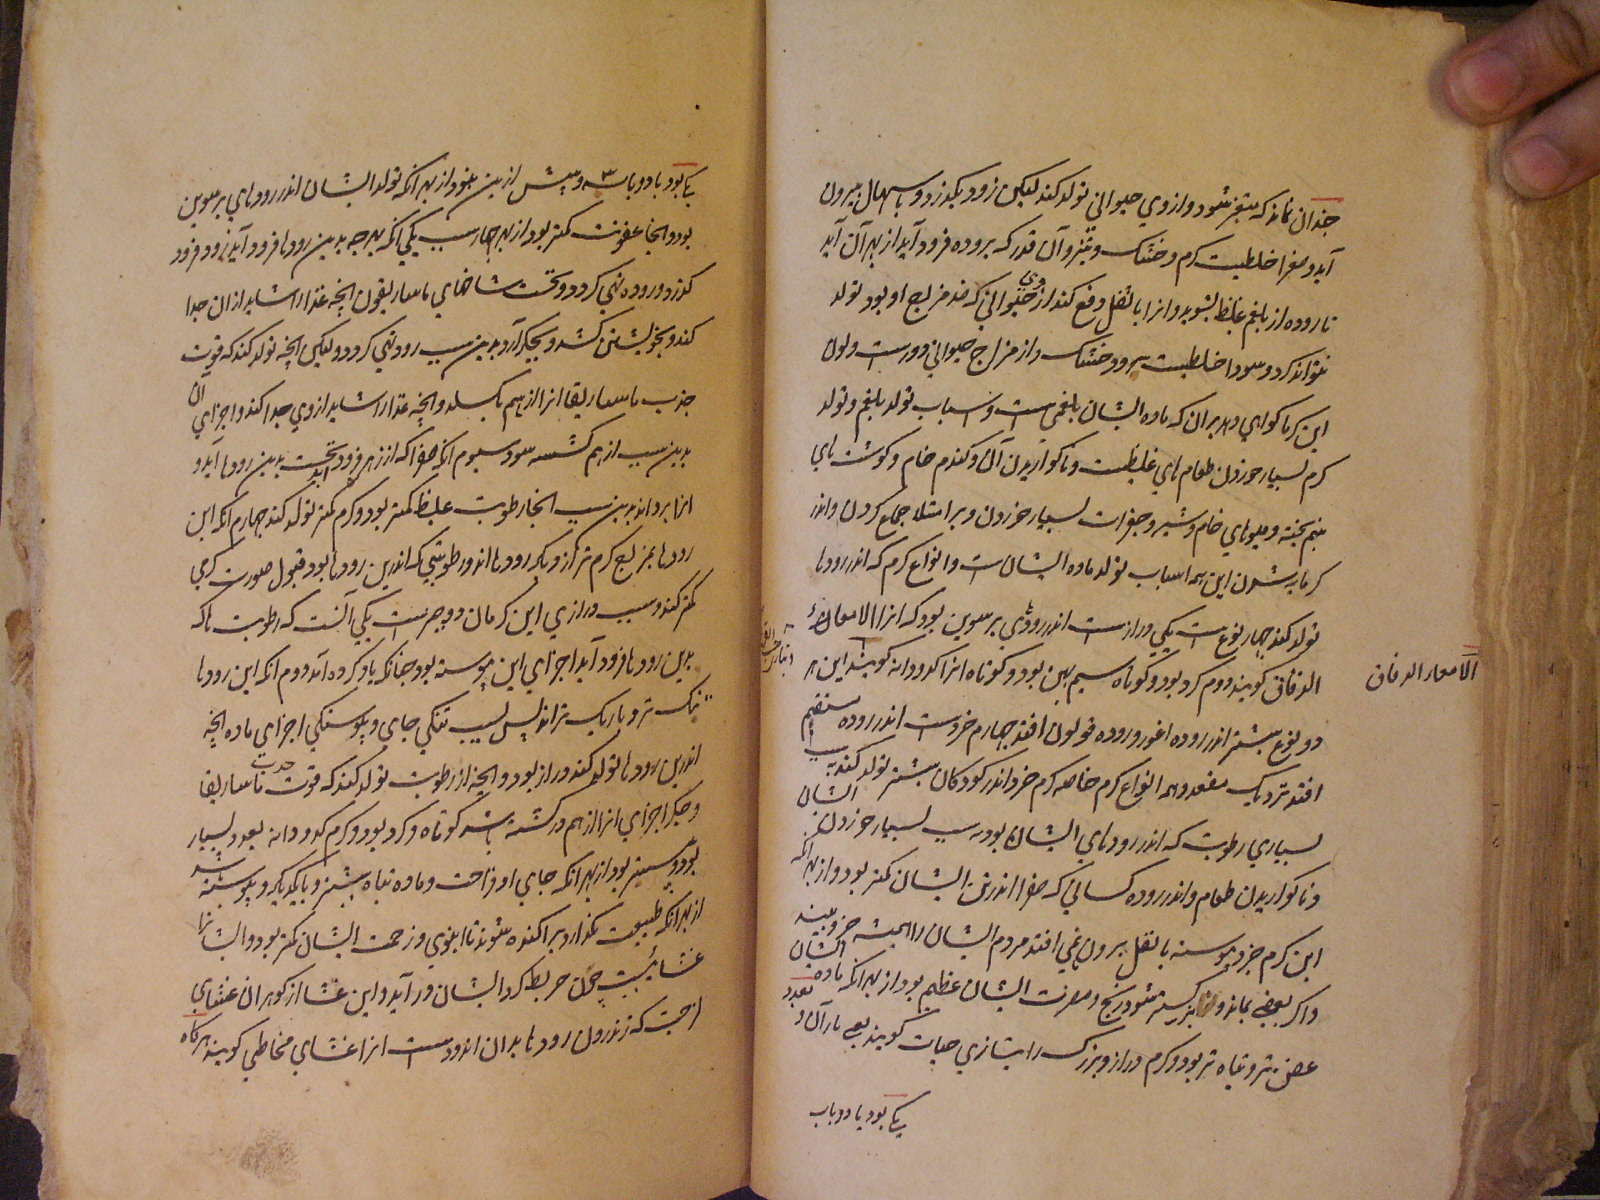 چندان نماند که متغیر شود و از وی حیوانی تولد کند لیکن زود بگذرد و باسهال بیرون
آید و صفرا خلطیست گرم و خشک و تیز و آن قدر که بروده فرود آید از بهر آن آید
تا روده از بلغم غلیظ بشوید و انرا با ثفل دفع کند از وی حیوانی که ضد مزاج او بود تولد
نتواند کرد و سودا خلطیست سرد و خشک و از مزاج حیوانی دورست و لون
این کرما کواهی دهد بران که ماده ایشان بلغمی‌ست و اسباب تولد بلغم و تولد
کرم بسیار خوردن طعام‌های غلیظست و ناکواریدن آن و کندم خام و کوشت‌های
نیم پخته و میوهای خام و شیر و جغرات بسیار خوردن و بر امتلا جماع کردن و اندر
کرمابه شدن این همه اسباب تولد ماده ایشان‌ست و انواع کرم که اندر رودها
تولد کند چهار نوع‌ست یکی درازست اندر رودهٔ برسوین بود که انرا الامعاء
الدقاق کویند دوم کرد بود و کوتاه سیم پهن بود و کوتاه انرا کدودانه کویند این هر
دو نوع بیشتر اندر روده اعور و روده قولون افتد چهارم خردست اندر روده مستقیم
افتد نزدیک مقعد و همه انواع کرم خاصه کرم خرد اندر کودکان بیشتر تولد کند بسبب
بسیاری رطوبت که اندر رودهای ایشان بود بسبب بسیار خوردن ایشان
و ناکواریدن طعام و اندر روده کسانی که صفرا اندر تن ایشان کمتر بود و از بهر انکه
این کرم خرد پیوسته با ثفل بیرون می افتد مردم ایشان را همیشه خرد بیند
و اکر بعضی بماند و بزرکتر شود رنج و مضرت ایشان عظیم بود از بهر انکه ماده ایشان
عفن‌تر و تباه‌تر بود و کرم دراز و بزرک را بتازی حیات کویند یعنی ماران و تعدد
یکی بود یا دو یا ب
الامعاء الدقاق
یکی بود یا دو یا سه و بیش ازین نبود از بهر انکه تولد ایشان اندر رودهای برسوین
بود و انجا عفونت کمتر بود از بهر چهار سبب یکی انکه هرچه بدین رودها فرود آید زود فرود
کذرد و روده تهی کردد و تحت شاخهای ماساریقون انچه غذا را شاید ازان جدا
کند و بخویشتن کشد و بجکر آرد بدین سبب رود تهی کردد و لیکن انچه تولد کند که قوت
جذب ماساریقا انرا از هم بکسلد و انچه غذا را شاید ازوی جدا کند و اجزای آن
بدین سبب از هم کسسته شود سیوم انکه صفرا که از زهره فرود آید نخست بدین رودها آید و
انرا برداند بدین سبب انجا رطوبت غلیظ کمتر بود و کرم کمتر تولد کند چهارم انکه این
رودها بمزاج کرم‌تر از دیکر رودها اند و رطوبتی که اندرین رودها بود قبول صورت کرمی
کمتر کند و سبب درازی این کرمان دو چیزست یکی آنست که رطوبت ناکه
بدین رودها فرود آید اجزای این پیوسته بود چنانکه یاد کرده آمد دوم انکه این رودها
تنک‌تر و باریک‌تر اند پس بسبب تنکی جای و پیوستکی اجزای ماده انچه
اندرین رودها تولد کند دراز بود و انچه از رطوبت تولد کند که قوت جذب ماساریقا
و جکر اجزای انرا از هم در کسسته باشد کوتاه و کرد بود و کرم کدودانه بعدد بسیار
بود و بیشتر بود از بهر انکه جای او فراخست و ماده تباه بیشتر و با یکدیکر و پیوسته‌تر
از بهر انکه طبیعت نکذارد پراکنده شوند تا انبوهی و زحمت ایشان کمتر بود و ایشانرا
غشائیست چون خریطه کرد ایشان در آید و این غشا از کوهر آن غشای
ازجست که اندرون رودها بدان اندودست انرا غشای مخاطی کویند هرکاه